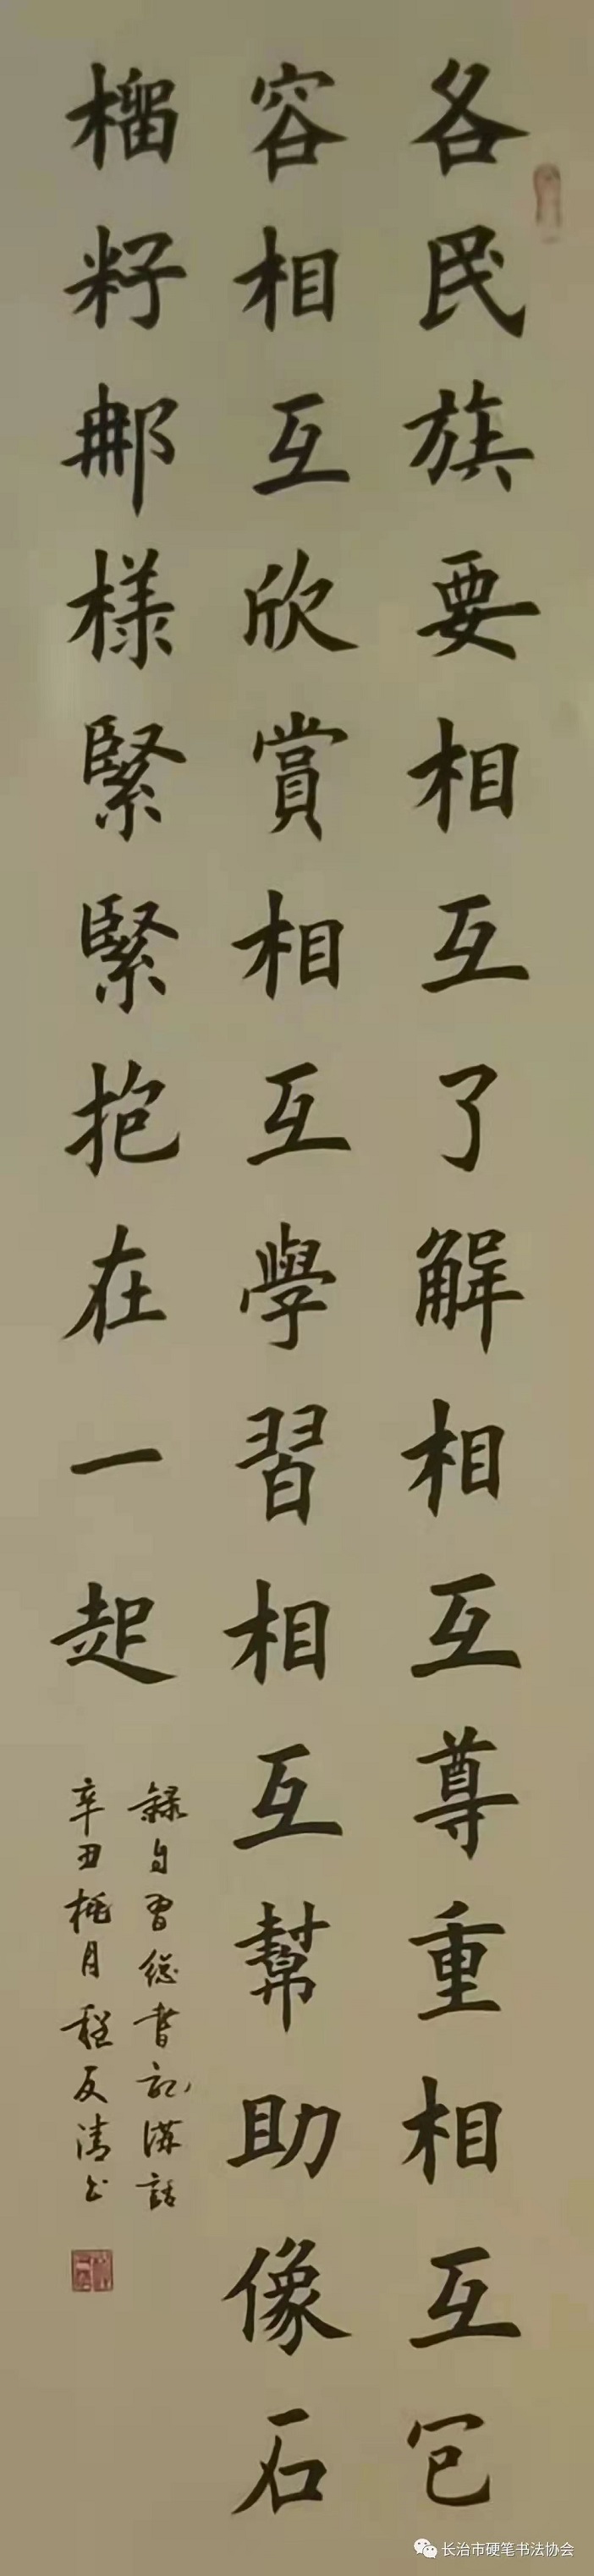 各民族要相互了解相互尊重相互包
容相互欣賞相互學習相互幫助像石
榴籽那样緊緊抱在一起
錄自習総書記講話
辛丑桃月程反清书
长治市硬笔书法协会